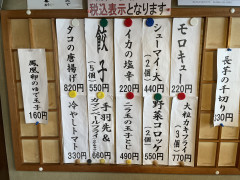 税込表示となります
モロキュー
220円
シューマイ(大)
440円
イカの塩辛
220円
餃子
(5個)
550円
タコの唐揚げ
820円
長芋の千切り
330円
鳳凰卵のゆで玉子
160円
大粒カキフライ
(3ケ)
770円
野菜コロッケ
(2ケ)
550円
490円
手羽先&
660円
冷やしトマト
330円